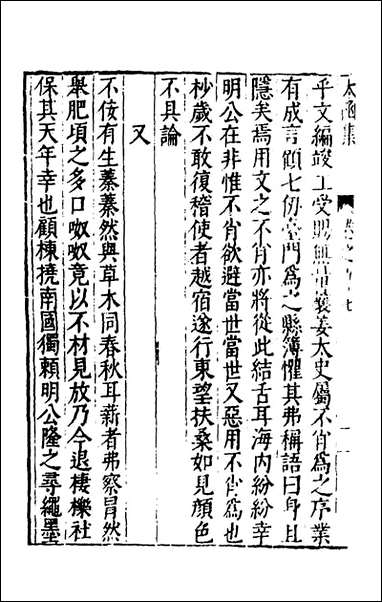 太函集
乎文編竣工受賜無𠮓裝姜太史屬不肖為之序業
有成言顧七仞臺門為之縣簿懼其弗稱語曰身且
隱矣焉用文之不肖亦將從此結舌耳海内紛紛幸
明公在非惟不肖欲避當世當世又惡用不肖為也
杪歲不敢復稽使者越宿遂行東望扶桑如見顏色
不具論
又
不佞有生蓁蓁然與草木同春秋耳薪者弗察冐然
舉肥頃之多口呶呶竟以不材見放乃今退棲櫟社
保其天年幸也顧棟橈南國獨賴明公隆之尋繩墨